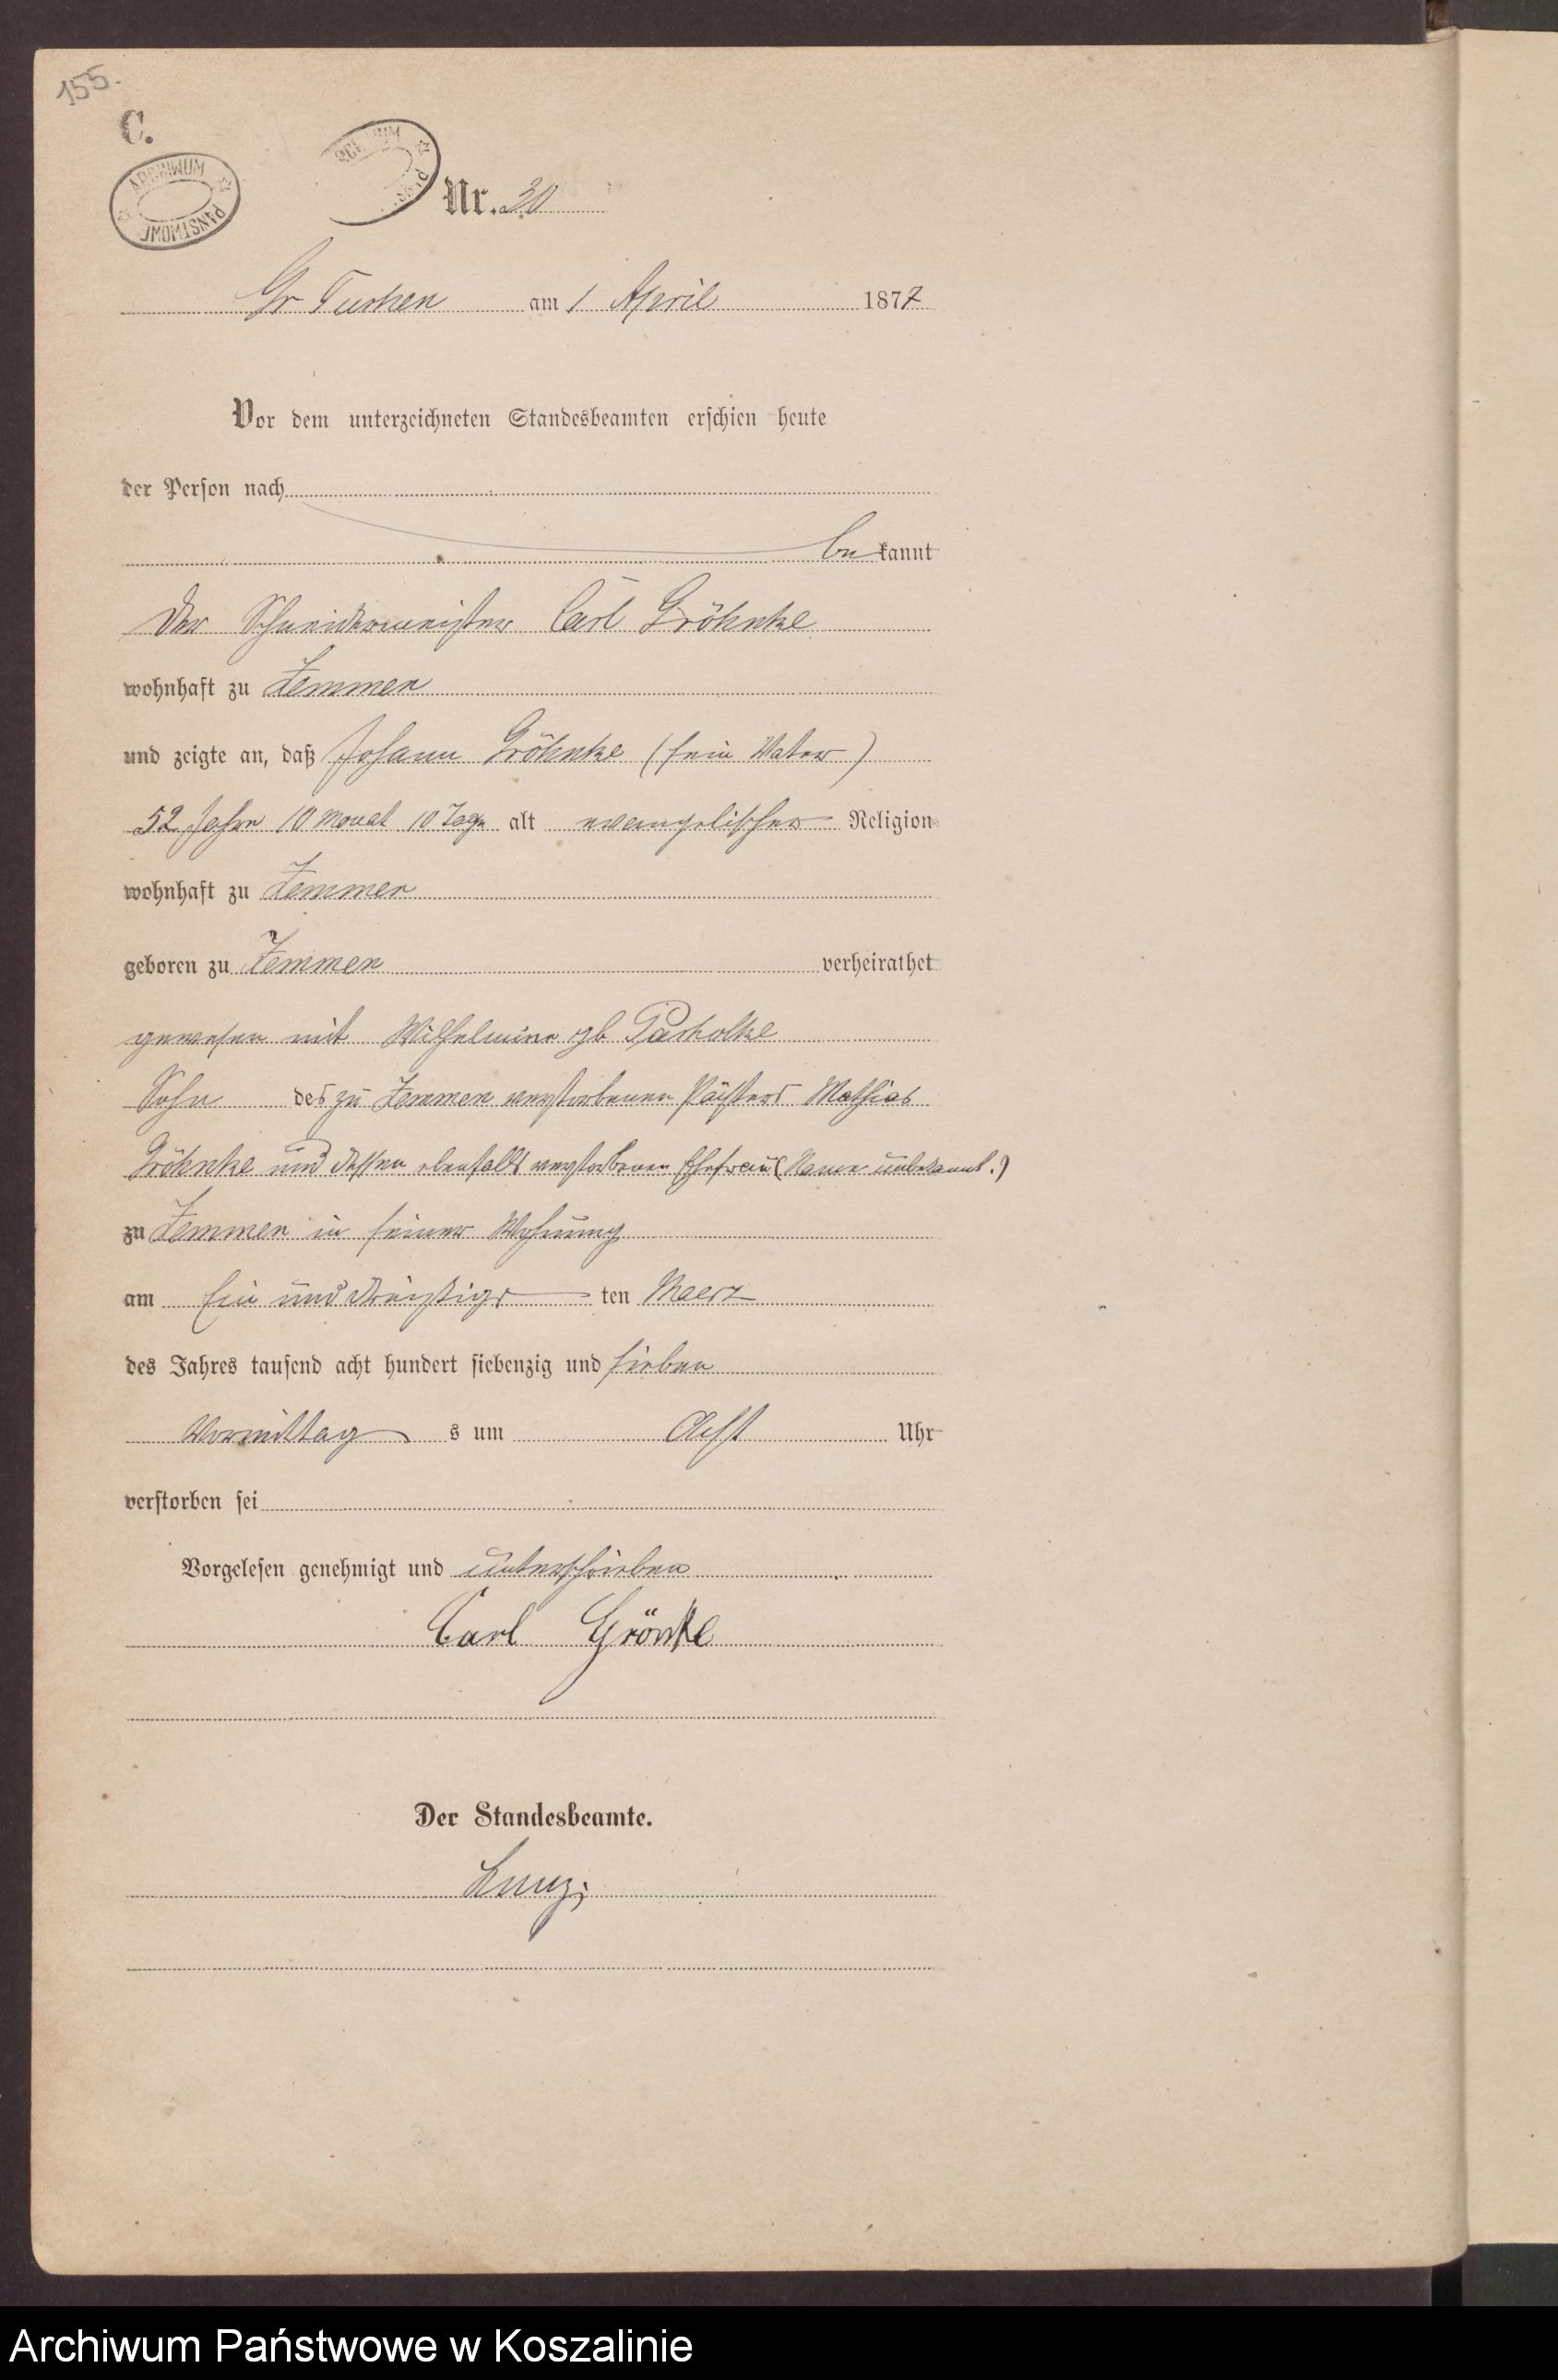 155.
C.
ARCHIWUM PAŃSTWOWE
Nr. 30
Gr Tuchen am 1 April 1877
Vor dem unterzeichneten Standesbeamten erschien heute
der Person nach
be kannt
Der Schneidermeister Carl Gröhnke
wohnhaft zu Zemmen
und zeigte an, daß Johann Gröhnke (sein Vater)
52 Jahre 10 Monat 10 Tage alt evangelischer Religion
wohnhaft zu Zemmen
geboren zu Zemmen verheirathet
gewesen mit Wilhelmine gb
Sohn des zu Zemmen verstorbenen Mathias
Gröhnke und dessen ebenfalls verstorbenen Ehefrau (Name unbekannt.)
zu Zemmen in seiner Wohnung
am Ein und dreißigs ten Maerz
des Jahres tausend acht hundert siebenzig und sieben
Vormittag s um Acht Uhr
verstorben sei
Vorgelesen genehmigt und unterschrieben
Carl Grönke
Der Standesbeamte.
Archiwum Państwowe w Koszalinie